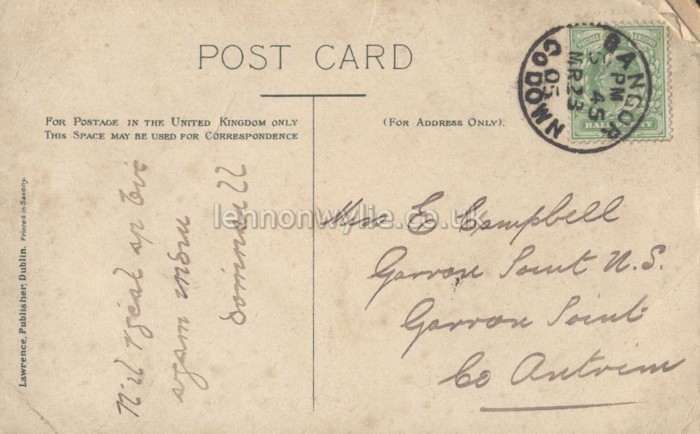 POST CARD
FOR POSTAGE IN THE UNITED KINGDOM ONLY
THIS SPACE MAY BE USED FOR CORRESPONDENCE
(FOR ADDRESS ONLY).
BANGOR
45 PM
MR 23
05
CO DOWN
Nil sgéal ar
agam indiu
Domnall
E Campbell
Garron Point N.S.
Garron Point
Co Antrim
Lawrence, Publisher, Dublin. Printed in Saxony.
lennonwylie.co.uk